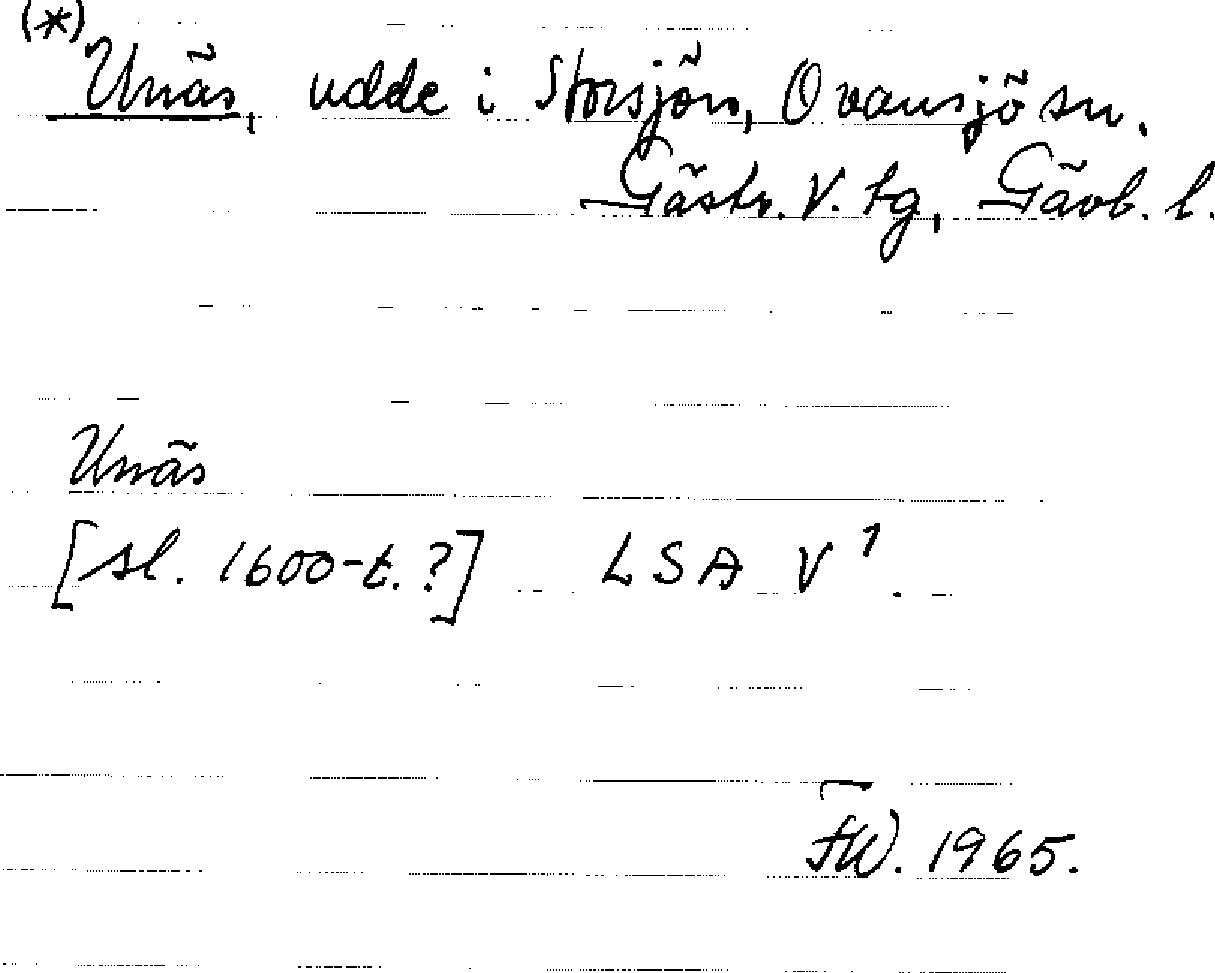 (*)
Unäs, udde i Storsjön, Ovansjö sn.
Gästr. V. tg, Gävb. l.
Unäs
[sl. 1600-t.?] LSA V 1.
FW. 1965.